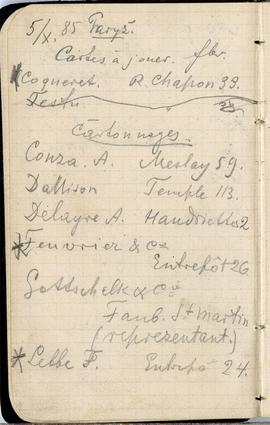 5/X. 85 Paryż.
Cartes à jouer. fbr.
* Cogneret. R. Chapon 33.
Testu
Cartonnages.
Conza. A. Meslay 59.
Dallison Temple 113.
Delayre A. Handriettes 2
* Feuvrier & Co
Entrepôt 26
Gottschelk & Cie
Faub. St Martin
(reprezentant.)
* Lebbe F. Entrepô 24.